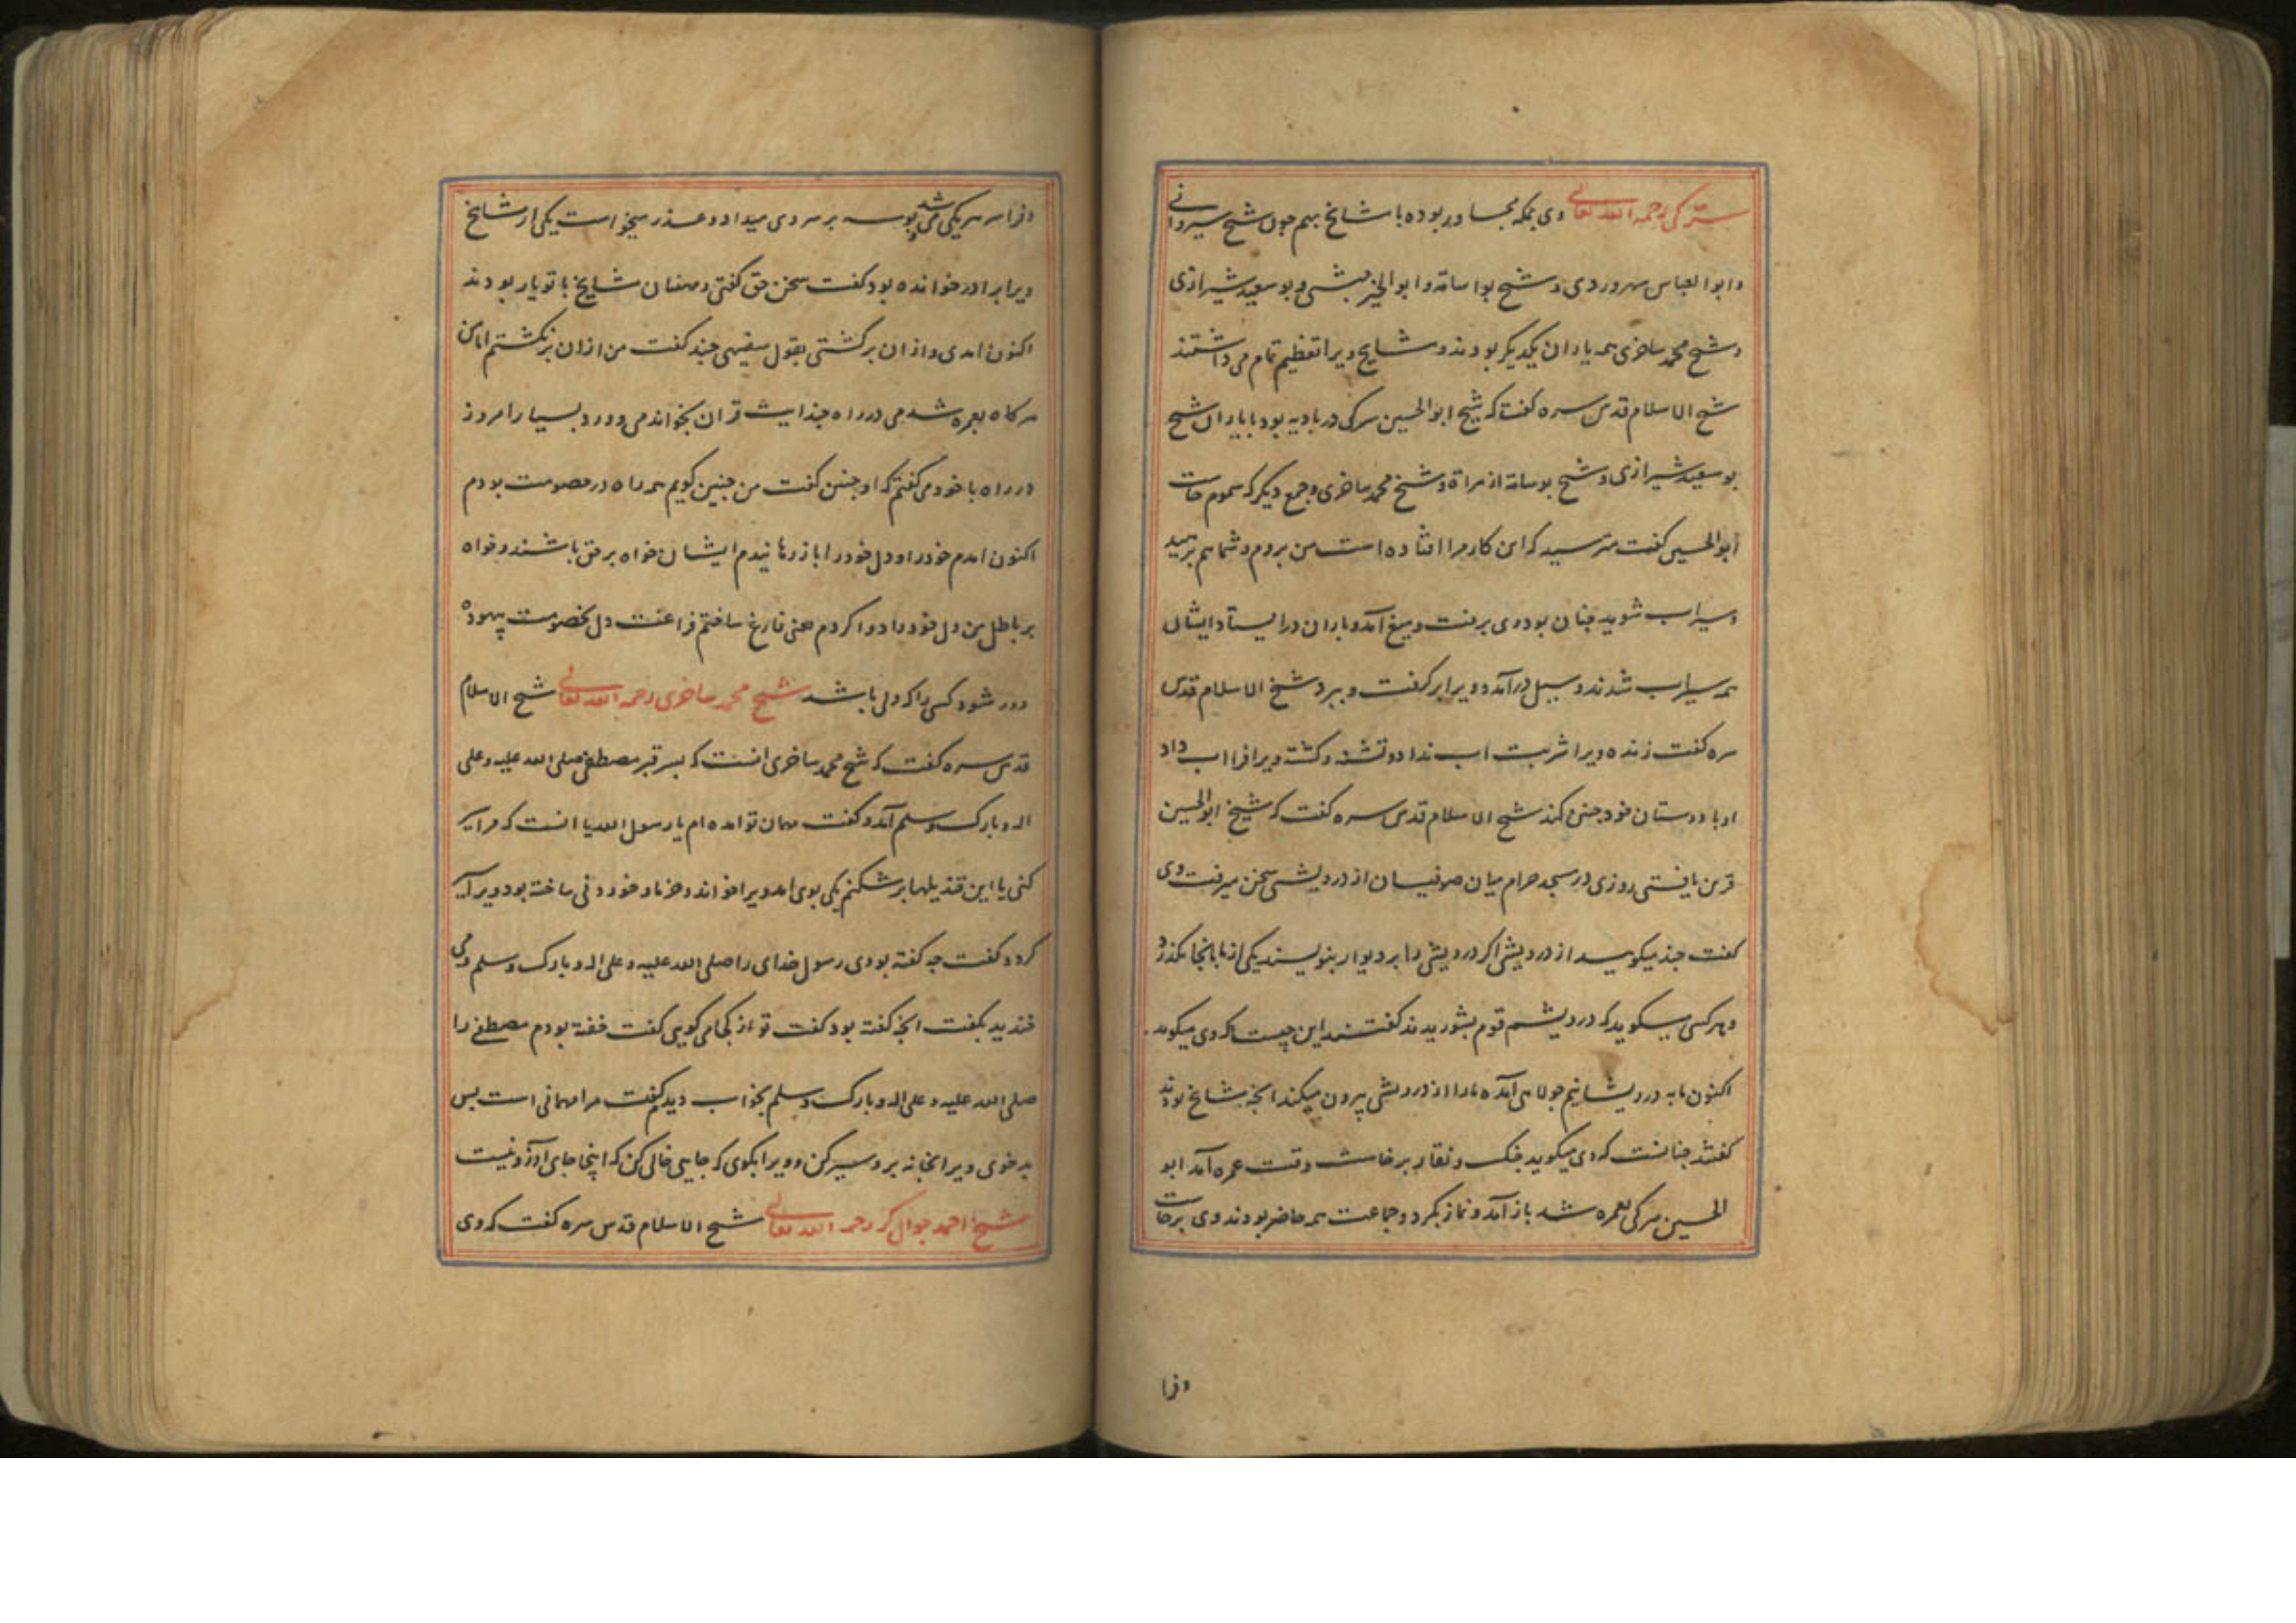 سرکی رحمه الله تعالی وی بمکه مجاور بوده با مشایخ بهم چون شیخ سیروانی
وابوالعباس سهروردی و شیخ بواسامه وابوالخیر حبشی وبوسعید شیرازی
وشیخ محمد ساخری همه یاران یکدیگر بودند ومشایخ ویرا تعظیم تمام می داشتند
شیخ الاسلام قدس سره گفت که شیخ ابوالحسین سرکی در بادیه بود بایاران شیخ
بوسعید شیرازی وشیخ بوسامه از هراة وشیخ محمد ساخری وجمع دیگر که سموم خاست
ابوالحسین گفت مترسید که این کار مرا افتاده است من بروم وشما هم برهید
وسیراب شوید چنان بود وی برفت ومیغ آمد وباران در ایستاد ایشان
همه سیراب شدند وسیل در آمد وویرا برگرفت وببرد شیخ الاسلام قدس
سره گفت زنده ویرا شربت اب نداد وتشنه وکشته ویرا فرا اب داد
او با دوستان خود چنین کند شیخ الاسلام قدس سره گفت که شیخ ابوالحسین
قرین یافتی روزی در مسجد حرام میان صوفیان از درویشی سخن میرفت وی
گفت چند میکویید از درویشی اکر درویشی را بر دیوار بنویسند یکی از ما بانجا نکذرد
وهرکسی میکوید که درویشم قوم بشوریدند گفتند این چیست که وی میکوید
اکنون ما به درویشانیم جولاهی آمده مارا از درویشی بیرون میکند انچه مشایخ بودند
گفتند چنانست که وی میکوید جنک ونقار برخاست وقت عمره آمد ابو
الحسین سرکی بعمره شد باز آمد ونماز بکرد وجماعت همه حاضر بودند وی برخاست
وفرا
وفرا سر هریکی می شد وبوسه بر سر وی میداد وعذر میخواست یکی از مشایخ
ویرا برادر خوانده بود گفت سخن حق گفتی ومهنان مشایخ با تو یار بودند
اکنون امدی واز ان برکشتی بقول سفیهی چند گفت من از ان برنکشتم اما من
هرکاه بعمره شدمی در راه چند ایت قران بخواندمی وورد بسیار امروز
در راه با خود می گفتم که او چنین گفت من چنین کویم همه راه در خصومت بودم
اکنون امدم خود را ودل خود را باز رهانیدم ایشان خواه بر حق باشند وخواه
بر باطل من دل خود را دوا کردم یعنی فارغ ساختم فراغت دل بخصومت بیهوده
دور شود کسی را که دلی باشد شیخ محمد ساخری رحمه الله تعالی شیخ الاسلام
قدس سره گفت که شیخ محمد ساخری انست که بسر قبر مصطفی صلی الله علیه وعلی
اله وبارک وسلم آمد وگفت مهمان تو امده ام یا رسول الله یا انست که مرا سیر
کنی یا این قندیلها بر شکنم یکی بوی امد ویرا خواند وخرما وخوردنی ساخته بود ویرا سیر
کرد وگفت چه گفته بودی رسول خدای را صلی الله علیه وعلی اله وبارک وسلم وی
خندید بگفت انچه گفته بود گفت تو از کجا می گویی گفت خفته بودم مصطفی را
صلی الله علیه وعلی اله وبارک وسلم بخواب دیدم گفت مرا مهمانی است بس
بد خوی ویرا بخانه بر وسیر کن وویرا بگوی که جایی خالی کن که اینجا جای ارزو نیست
شیخ احمد جوالکر رحمه الله تعالی شیخ الاسلام قدس سره گفت که وی